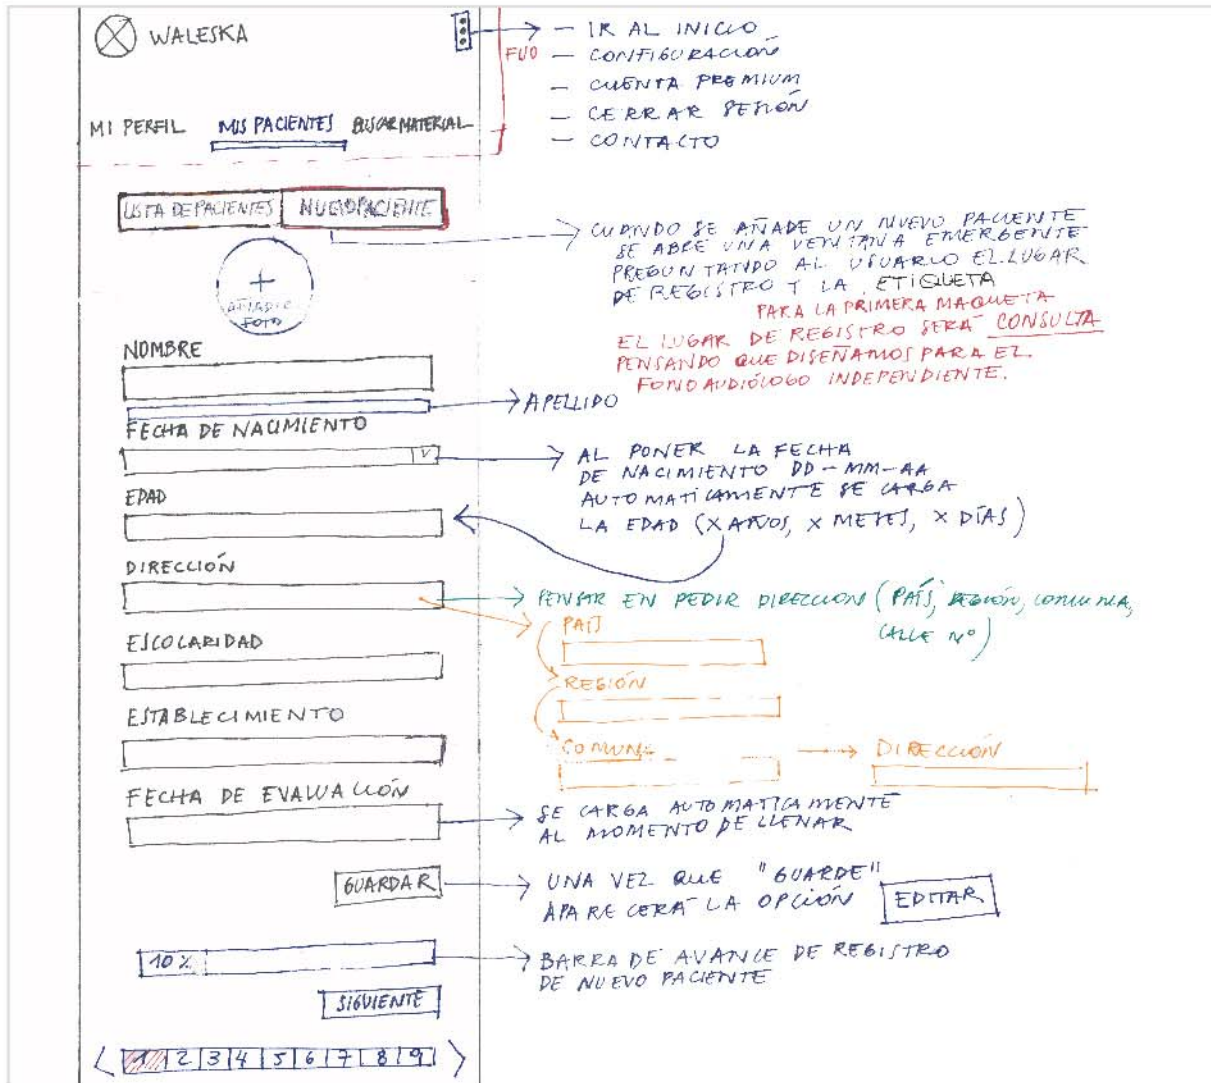 WALESKA
FIJO
– IR AL INICIO
– CONFIGURACIÓN
– CUENTA PREMIUM
– CERRAR SESIÓN
– CONTACTO
MI PERFIL MIS PACIENTES BUSCAR MATERIAL
LISTA DE PACIENTES NUEVO PACIENTE
+
AÑADIR
FOTO
CUANDO SE AÑADE UN NUEVO PACIENTE
SE ABRE UNA VENTANA EMERGENTE
PREGUNTANDO AL USUARIO EL LUGAR
DE REGISTRO Y LA ETIQUETA
PARA LA PRIMERA MAQUETA
EL LUGAR DE REGISTRO SERÁ CONSULTA
PENSANDO QUE DISEÑAMOS PARA EL
FONOAUDIÓLOGO INDEPENDIENTE.
NOMBRE
APELLIDO
FECHA DE NACIMIENTO
V
AL PONER LA FECHA
DE NACIMIENTO DD-MM-AA
AUTOMATICAMENTE SE CARGA
LA EDAD (X AÑOS, X MESES, X DÍAS)
EDAD
DIRECCIÓN
PENSAR EN PEDIR DIRECCION (PAÍS, REGIÓN, COMUNA,
CALLE Nº)
PAÍS
REGIÓN
COMUNA
DIRECCIÓN
ESCOLARIDAD
ESTABLECIMIENTO
FECHA DE EVALUACIÓN
SE CARGA AUTOMATICAMENTE
AL MOMENTO DE LLENAR
GUARDAR
UNA VEZ QUE "GUARDE"
APARECERÁ LA OPCIÓN EDITAR
10%
BARRA DE AVANCE DE REGISTRO
DE NUEVO PACIENTE
SIGUIENTE
< 1 2 3 4 5 6 7 8 9 >